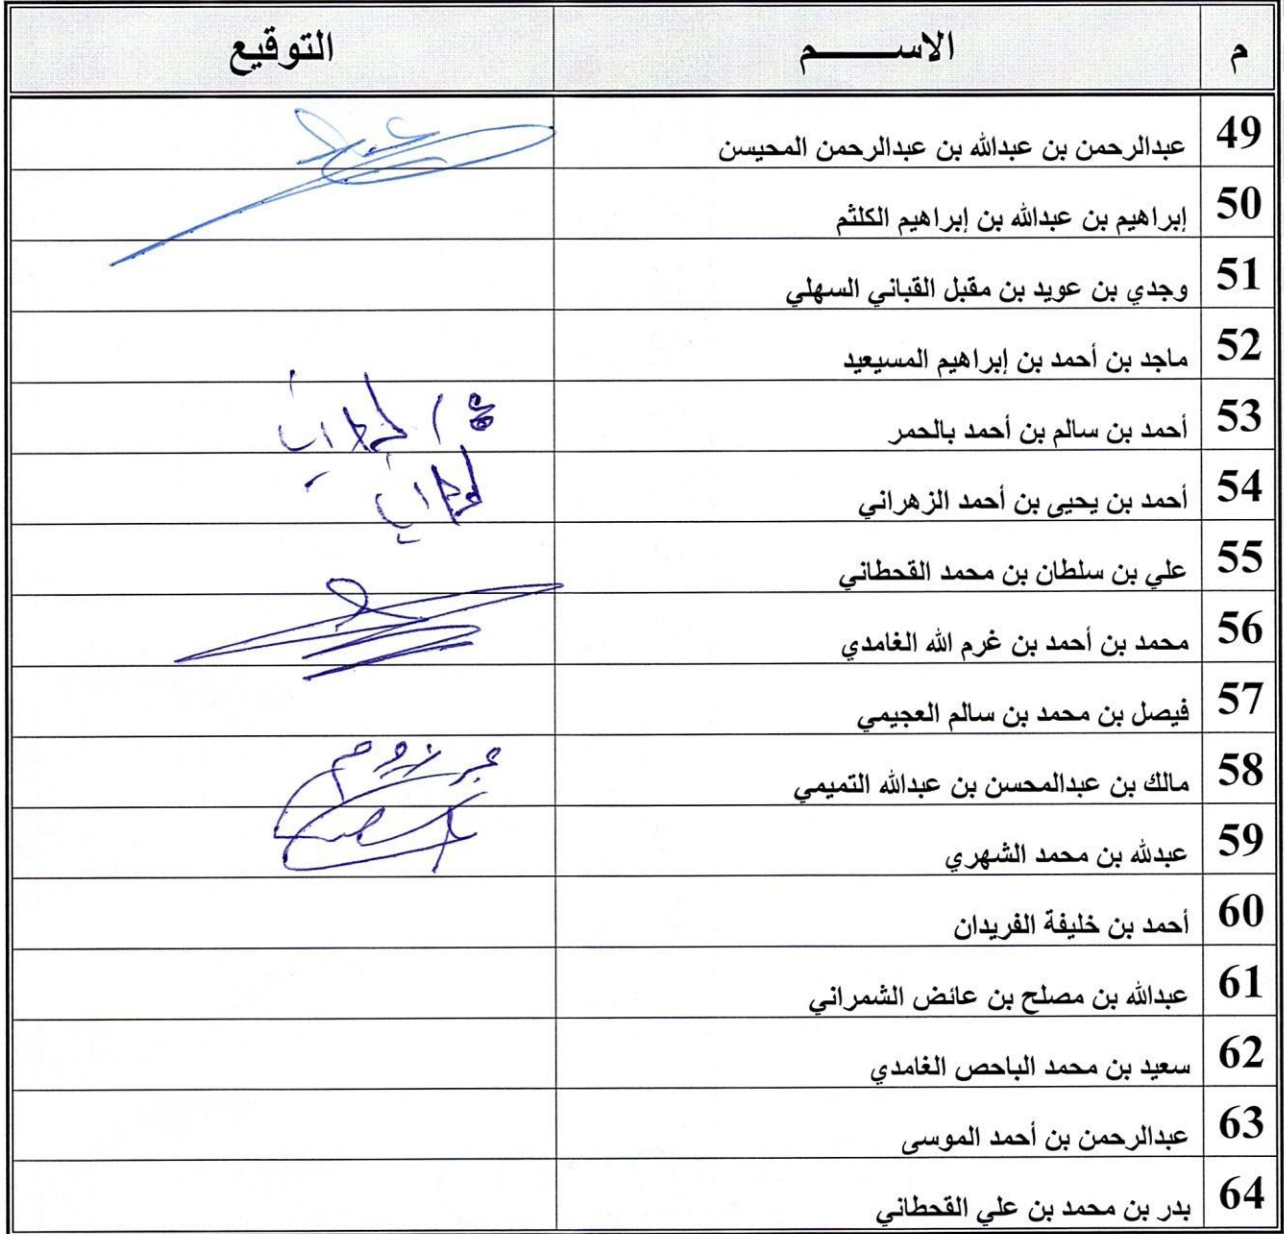 م الاســـــــم التوقيع
49 عبدالرحمن بن عبدالله بن عبدالرحمن المحيسن
50 إبراهيم بن عبدالله بن إبراهيم الكلثم
51 وجدي بن عويد بن مقبل القباني السهلي
52 ماجد بن أحمد بن إبراهيم المسيعيد
53 أحمد بن سالم بن أحمد بالحمر
54 أحمد بن يحيى بن أحمد الزهراني
55 علي بن سلطان بن محمد القحطاني
56 محمد بن أحمد بن غرم الله الغامدي
57 فيصل بن محمد بن سالم العجيمي
58 مالك بن عبدالمحسن بن عبدالله التميمي
59 عبدلله بن محمد الشهري
60 أحمد بن خليفة الفريدان
61 عبدالله بن مصلح بن عائض الشمراني
62 سعيد بن محمد الباحص الغامدي
63 عبدالرحمن بن أحمد الموسى
64 بدر بن محمد بن علي القحطاني